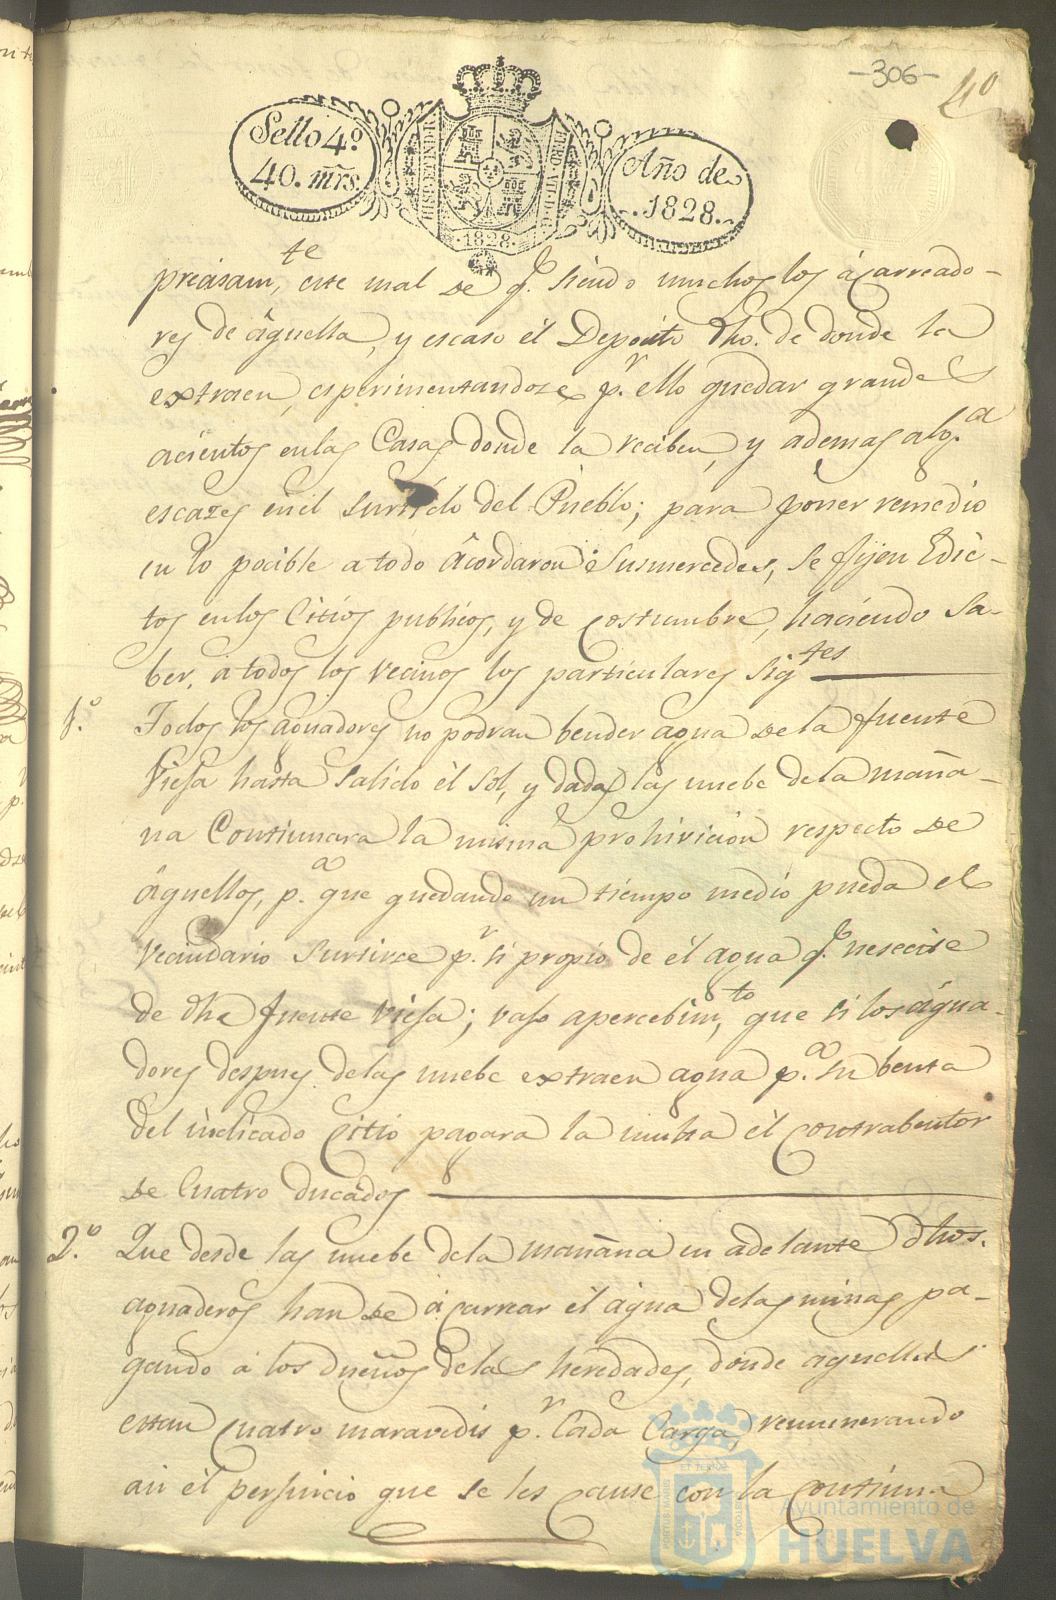 -306-
40
Sello 4º
40. mrs.
HISP. ET IND. R.
FERD. VII. D. G.
1828.
Año de
1828.
precisamte, este mal de q.e siendo muchos los ácarreado-
res de âquella, y escaso él Deposito dho. de donde la
extraen, esperimentandose p.r ello quedar grandes
acientos en las Casas donde la reciben, y ademas alg.a
escazes en él surtido del Pueblo; para poner remedio
en lo pocible a todo âcordaron Susmercedes, se fijen Edic-
tos en los Citios publicos, y de costumbre, haciendo sa-
ber, á todos los vecinos los particulares sigtes
1.º Todos los aguadores no podran bender agua de la fuente
Viefa hasta salido él sol, y dadas las nuebe de la maña-
na Continuara la misma prohivicion respecto de
áquellos, p.a que quedando un tiempo medio pueda el
Vecindario surtirce p.r si propio de él agua q.e nesecite
de dha fuente Viefa; vafo apercebimto, que si los água-
dores despues de las nuebe extraen agua p.a su benta
del indicado Citio pagara la multa él contrabentor
de Cuatro ducados
2.º Que desde las nuebe de la mañana en adelante dhos.
aguaderos han de ácarrear él agua de las minas pa-
gando á los dueños de las heredades, donde aquellas
estan cuatro maravedis p.r Cada Carga, remunerando
asi él perfuicio que se les cause con la Continua
PORTUS MARIS
ET TERRAE
CUSTODIA
Ayuntamiento de
HUELVA